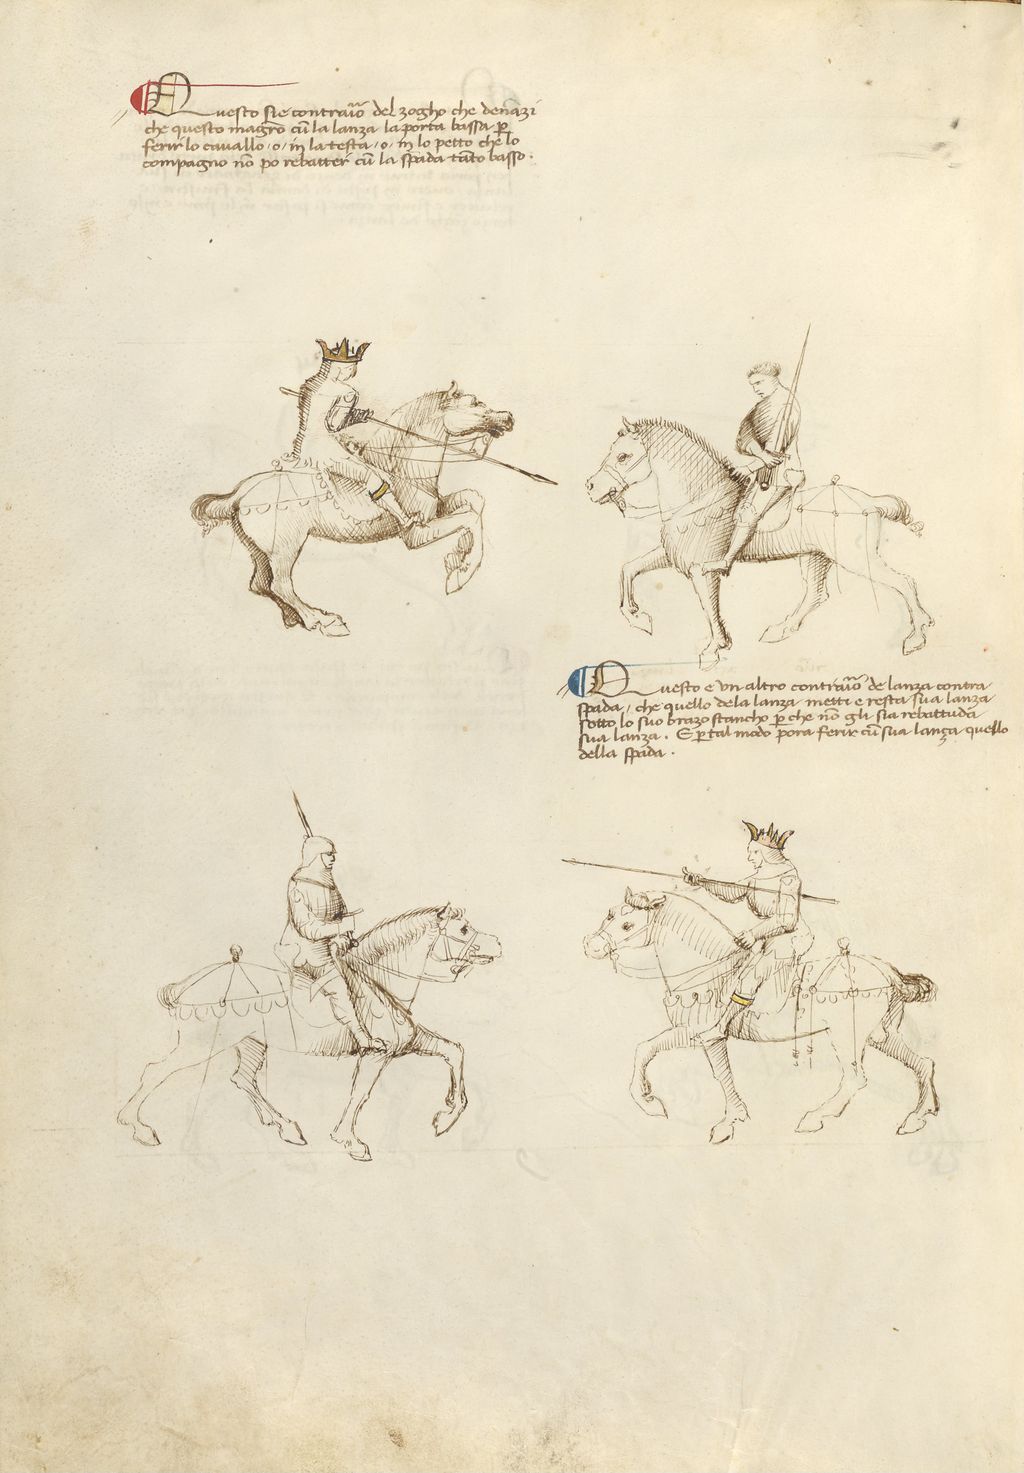 Questo sie contraiō del zogho che denāzi
che questo magrō cū la lanza la porta bassa p̄
ferir lo cavallo /o/ in la testa /o/ in lo petto che lo
compagno nō po rebatter cū la spada tāto basso.
Questo e un altro contraiō de lanza contra
spada, che quello dela lanza metti e resta sua lanza
sotto lo suo brazo stancho p̄ che nō gli sia rebattuda
sua lanza. E p̄ tal modo pora ferir cū sua lanza quello
della spada.